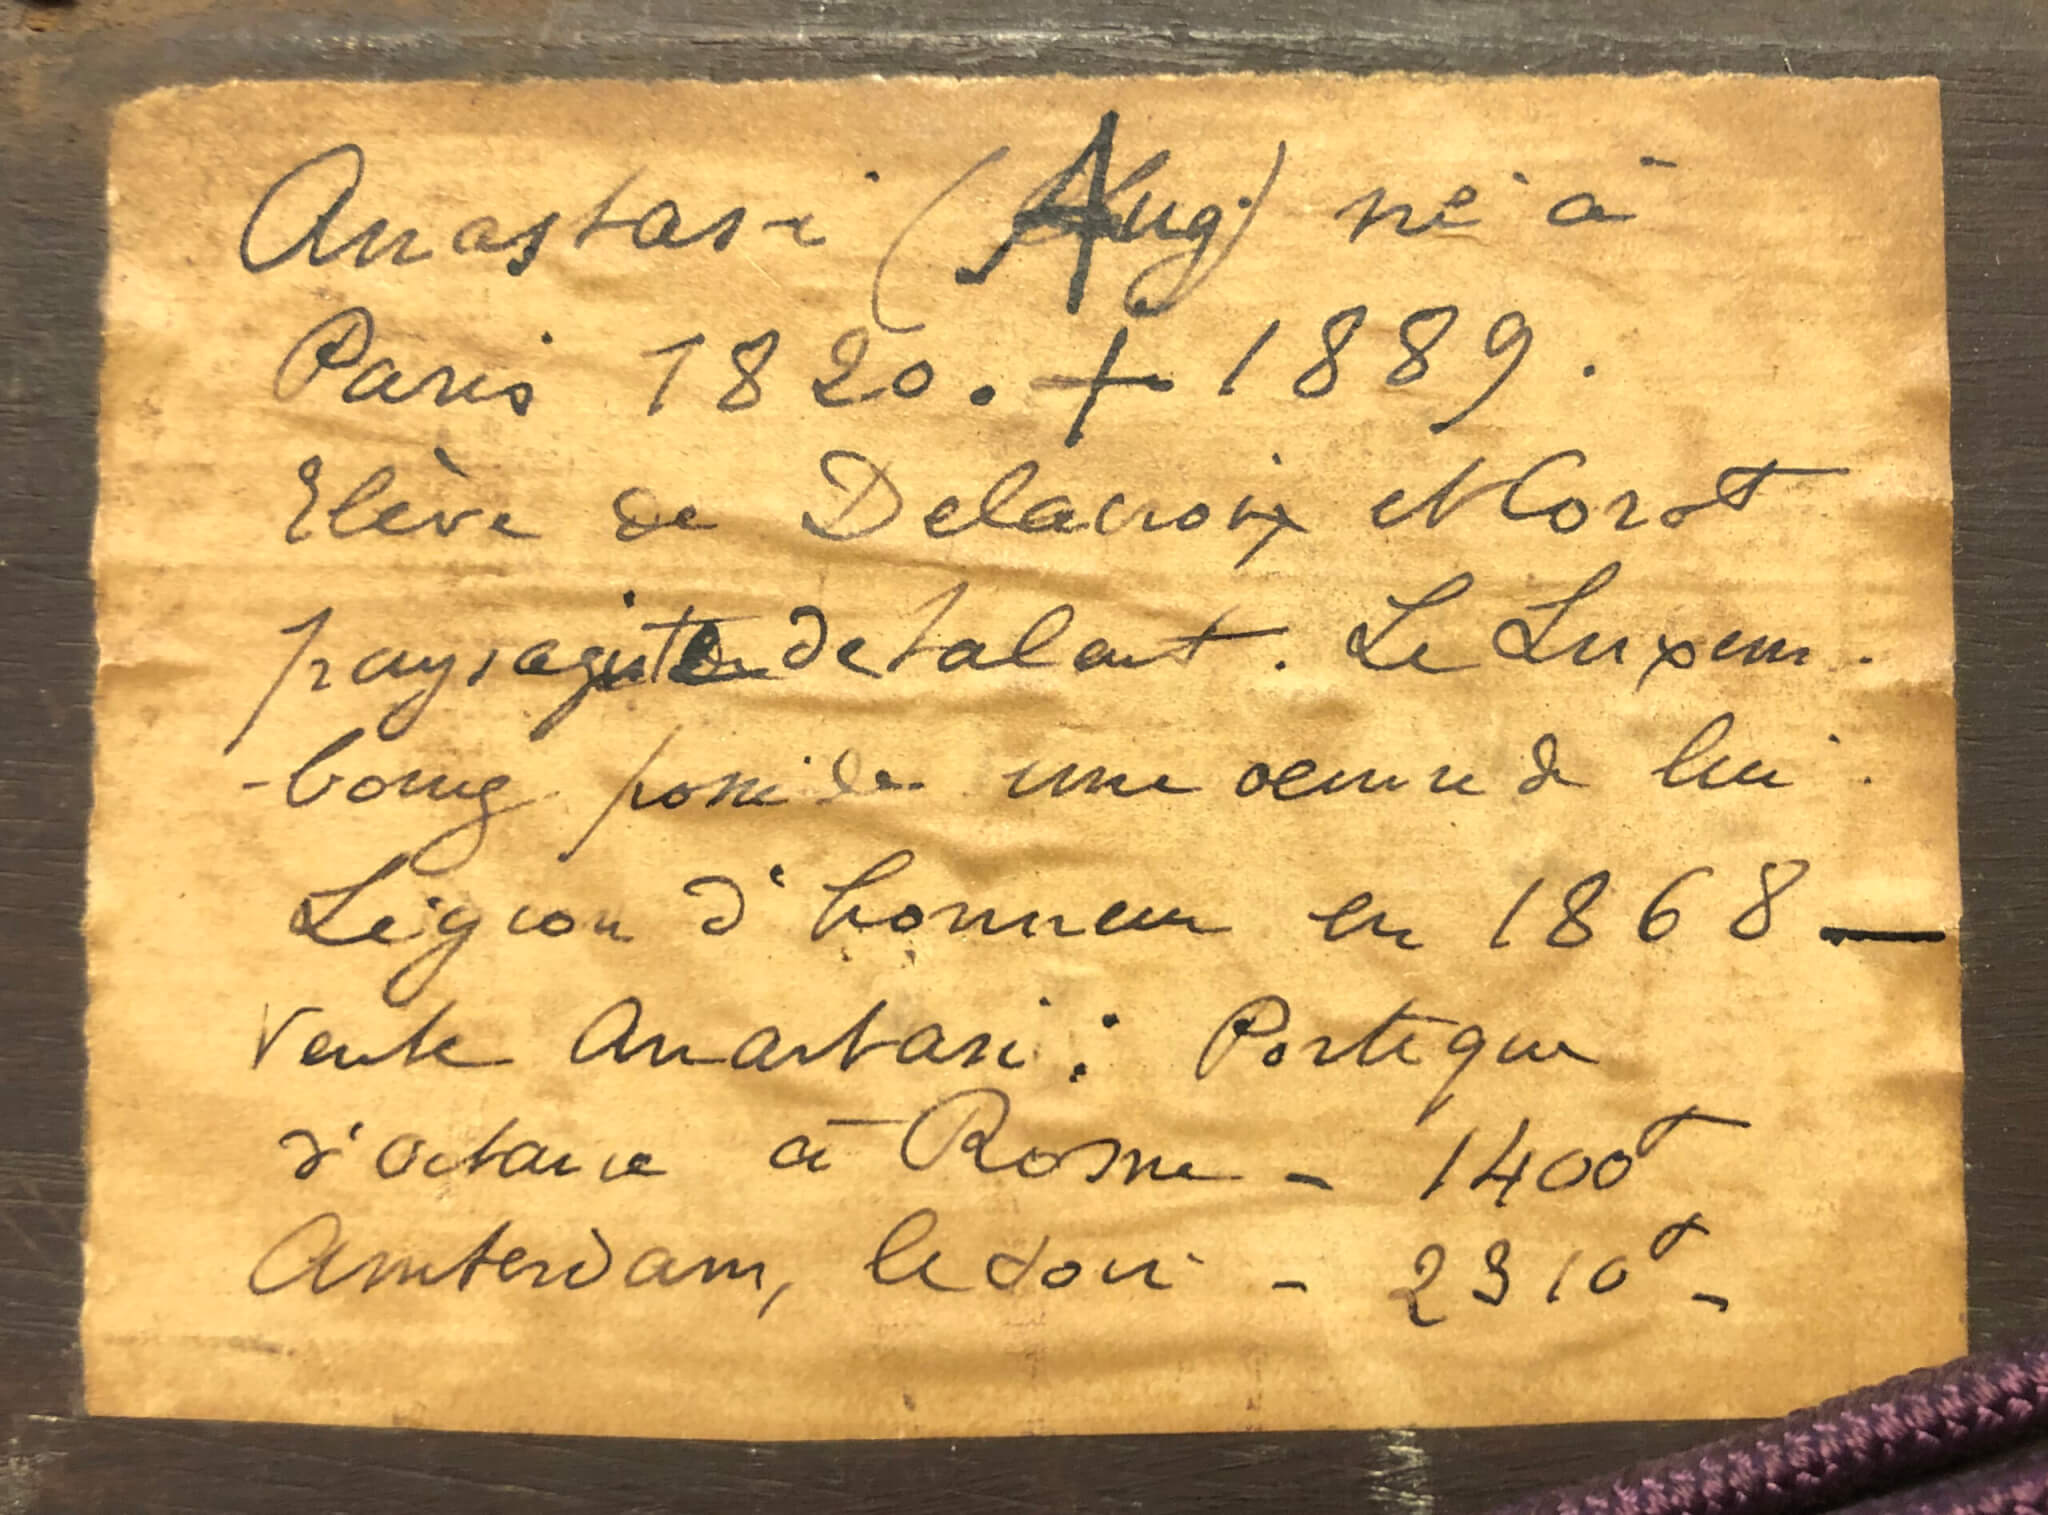 Anastasi (Aug.) né à
Paris 1820. + 1889.
Elève de Delacroix et Corot
paysagiste de talent. Le Luxem-
-bourg possède une oeuvre de lui.
Légion d'honneur en 1868 —
Vente Anastasi : Portique
d'Octavie à Rome - 1400f
Amsterdam, le soir - 2310f -